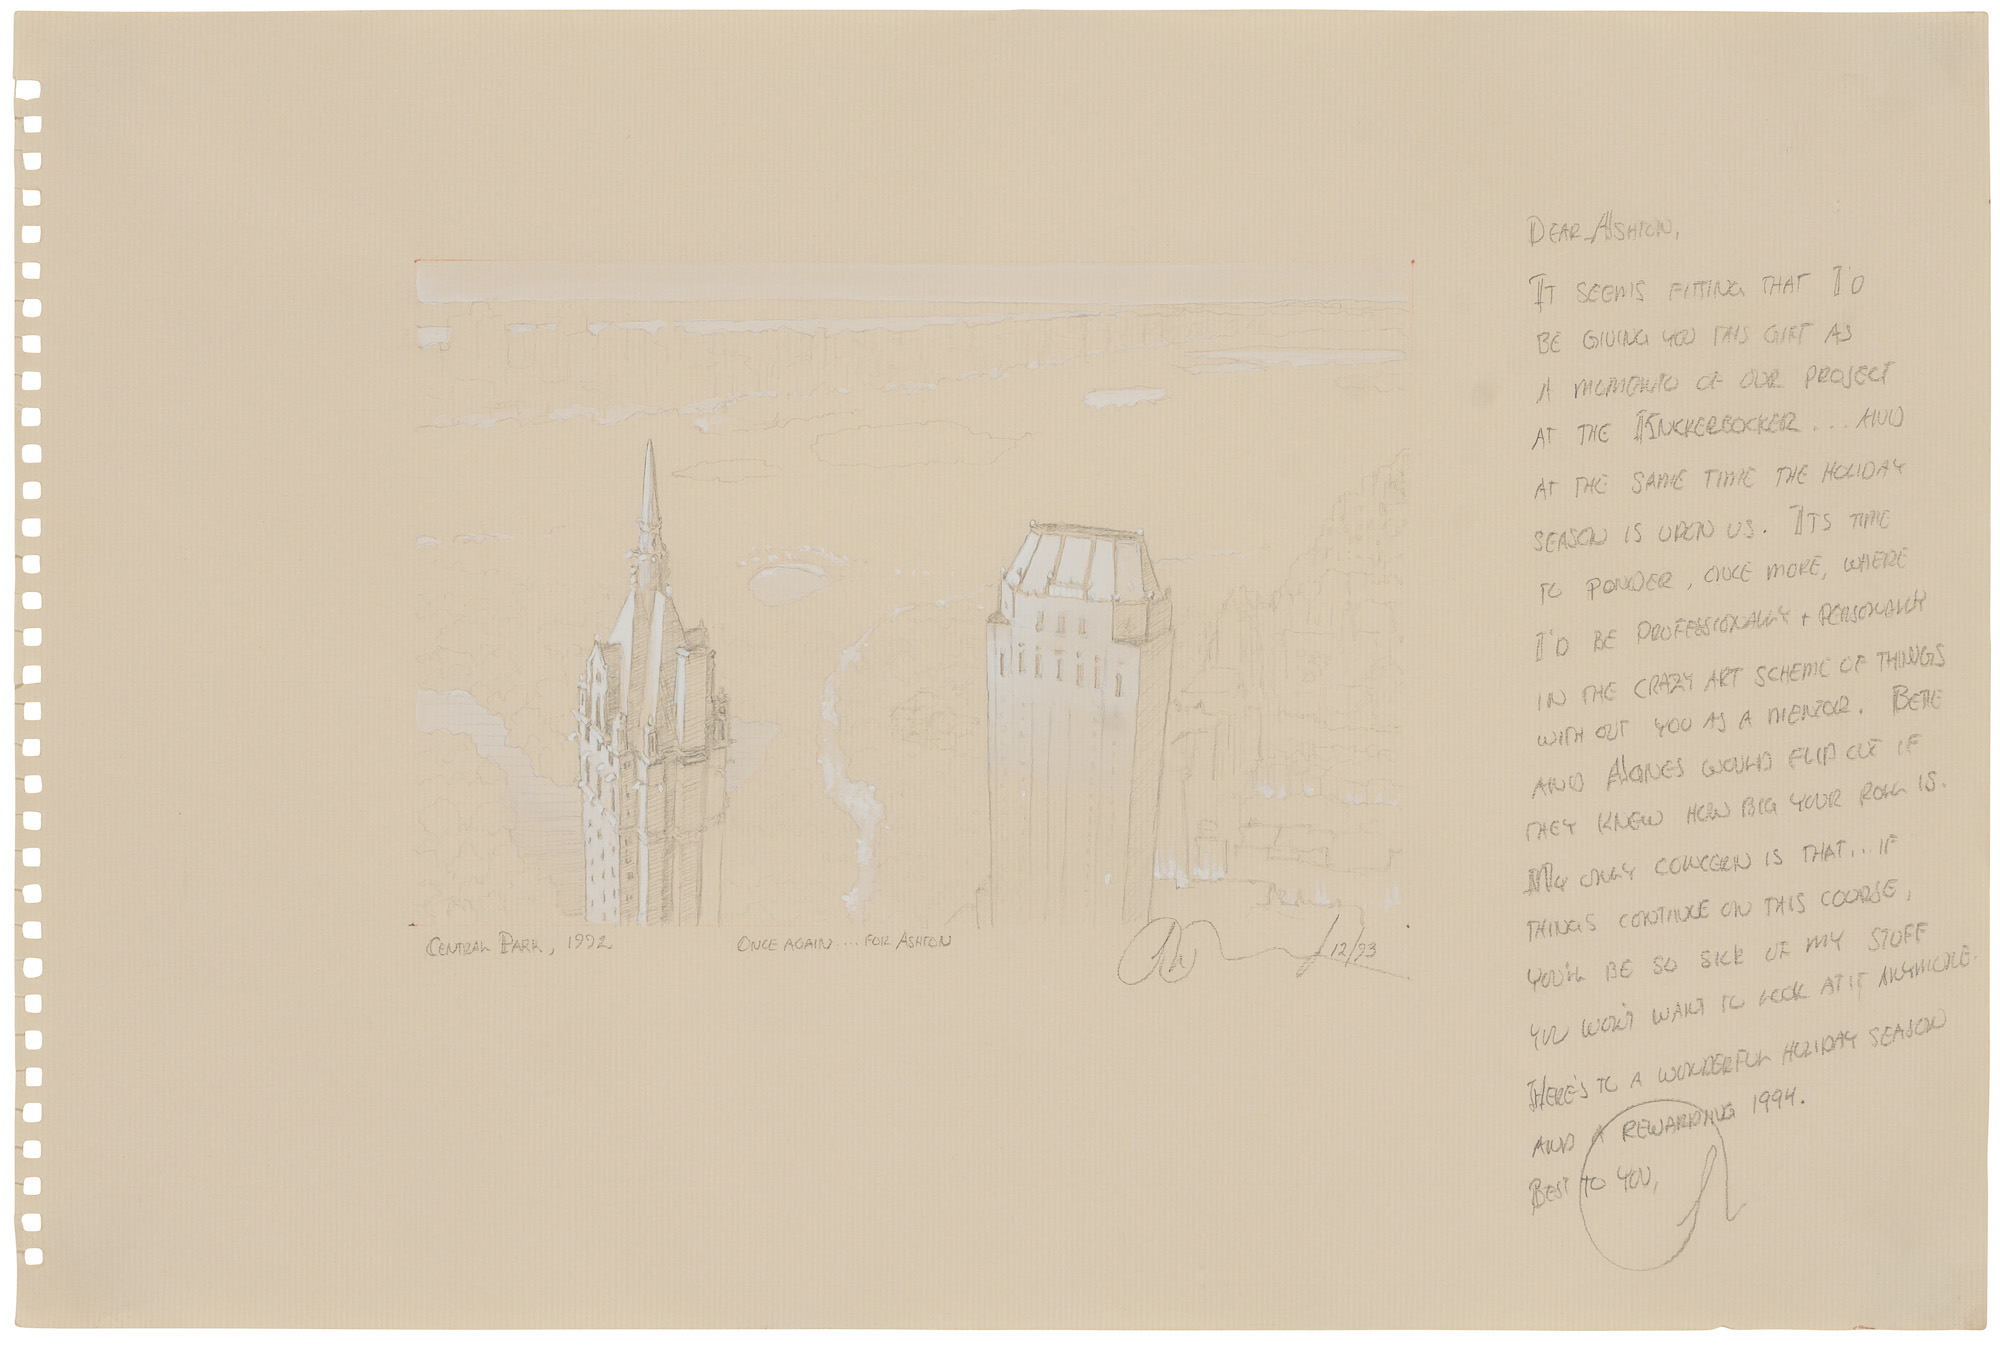 CENTRAL PARK, 1992
ONCE AGAIN ... FOR ASHTON
12/93
DEAR ASHTON,
IT SEEMS FITTING THAT I'D
BE GIVING YOU THIS GIFT AS
A MOMENTO OF OUR PROJECT
AT THE KNICKERBOCKER ... AND
AT THE SAME TIME THE HOLIDAY
SEASON IS UPON US. ITS TIME
TO PONDER, ONCE MORE, WHERE
I'D BE PROFESSIONALLY + PERSONALLY
IN THE CRAZY ART SCHEME OF THINGS
WITH OUT YOU AS A MENTOR. BETTE
AND AGNES WOULD FLIP OUT IF
THEY KNEW HOW BIG YOUR ROLL IS.
MY ONLY CONCERN IS THAT... IF
THINGS CONTINUE ON THIS COURSE,
YOU'LL BE SO SICK OF MY STUFF
YOU WON'T WANT TO LOOK AT IT ANYMORE.
HERE'S TO A WONDERFUL HOLIDAY SEASON
AND A REWARDING 1994.
BEST TO YOU,